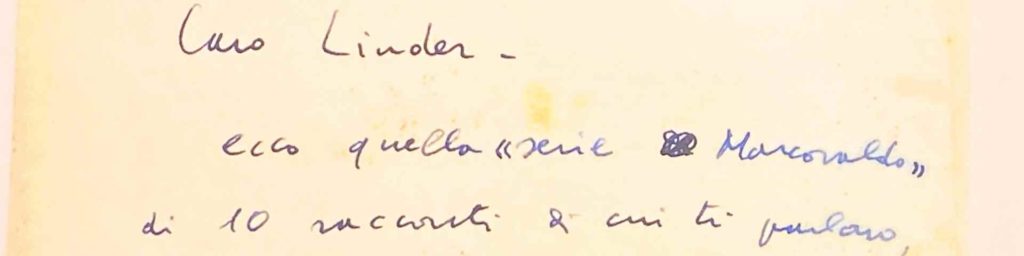 Caro Linder -
ecco quella «serie Marcovaldo»
di 10 racconti di cui ti parlavo,